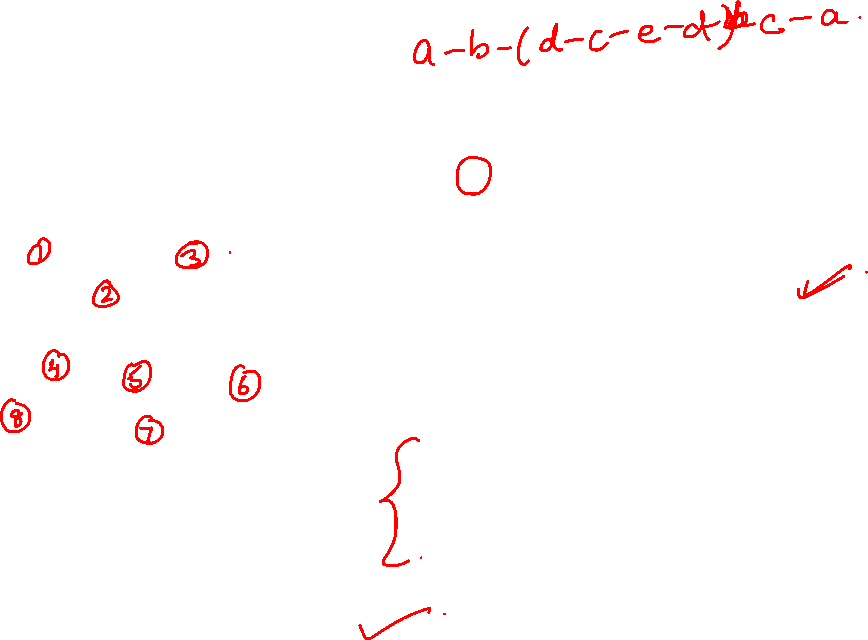 a-b-(d-c-e-d) c-a.
1
3
2
4
5
6
8
7